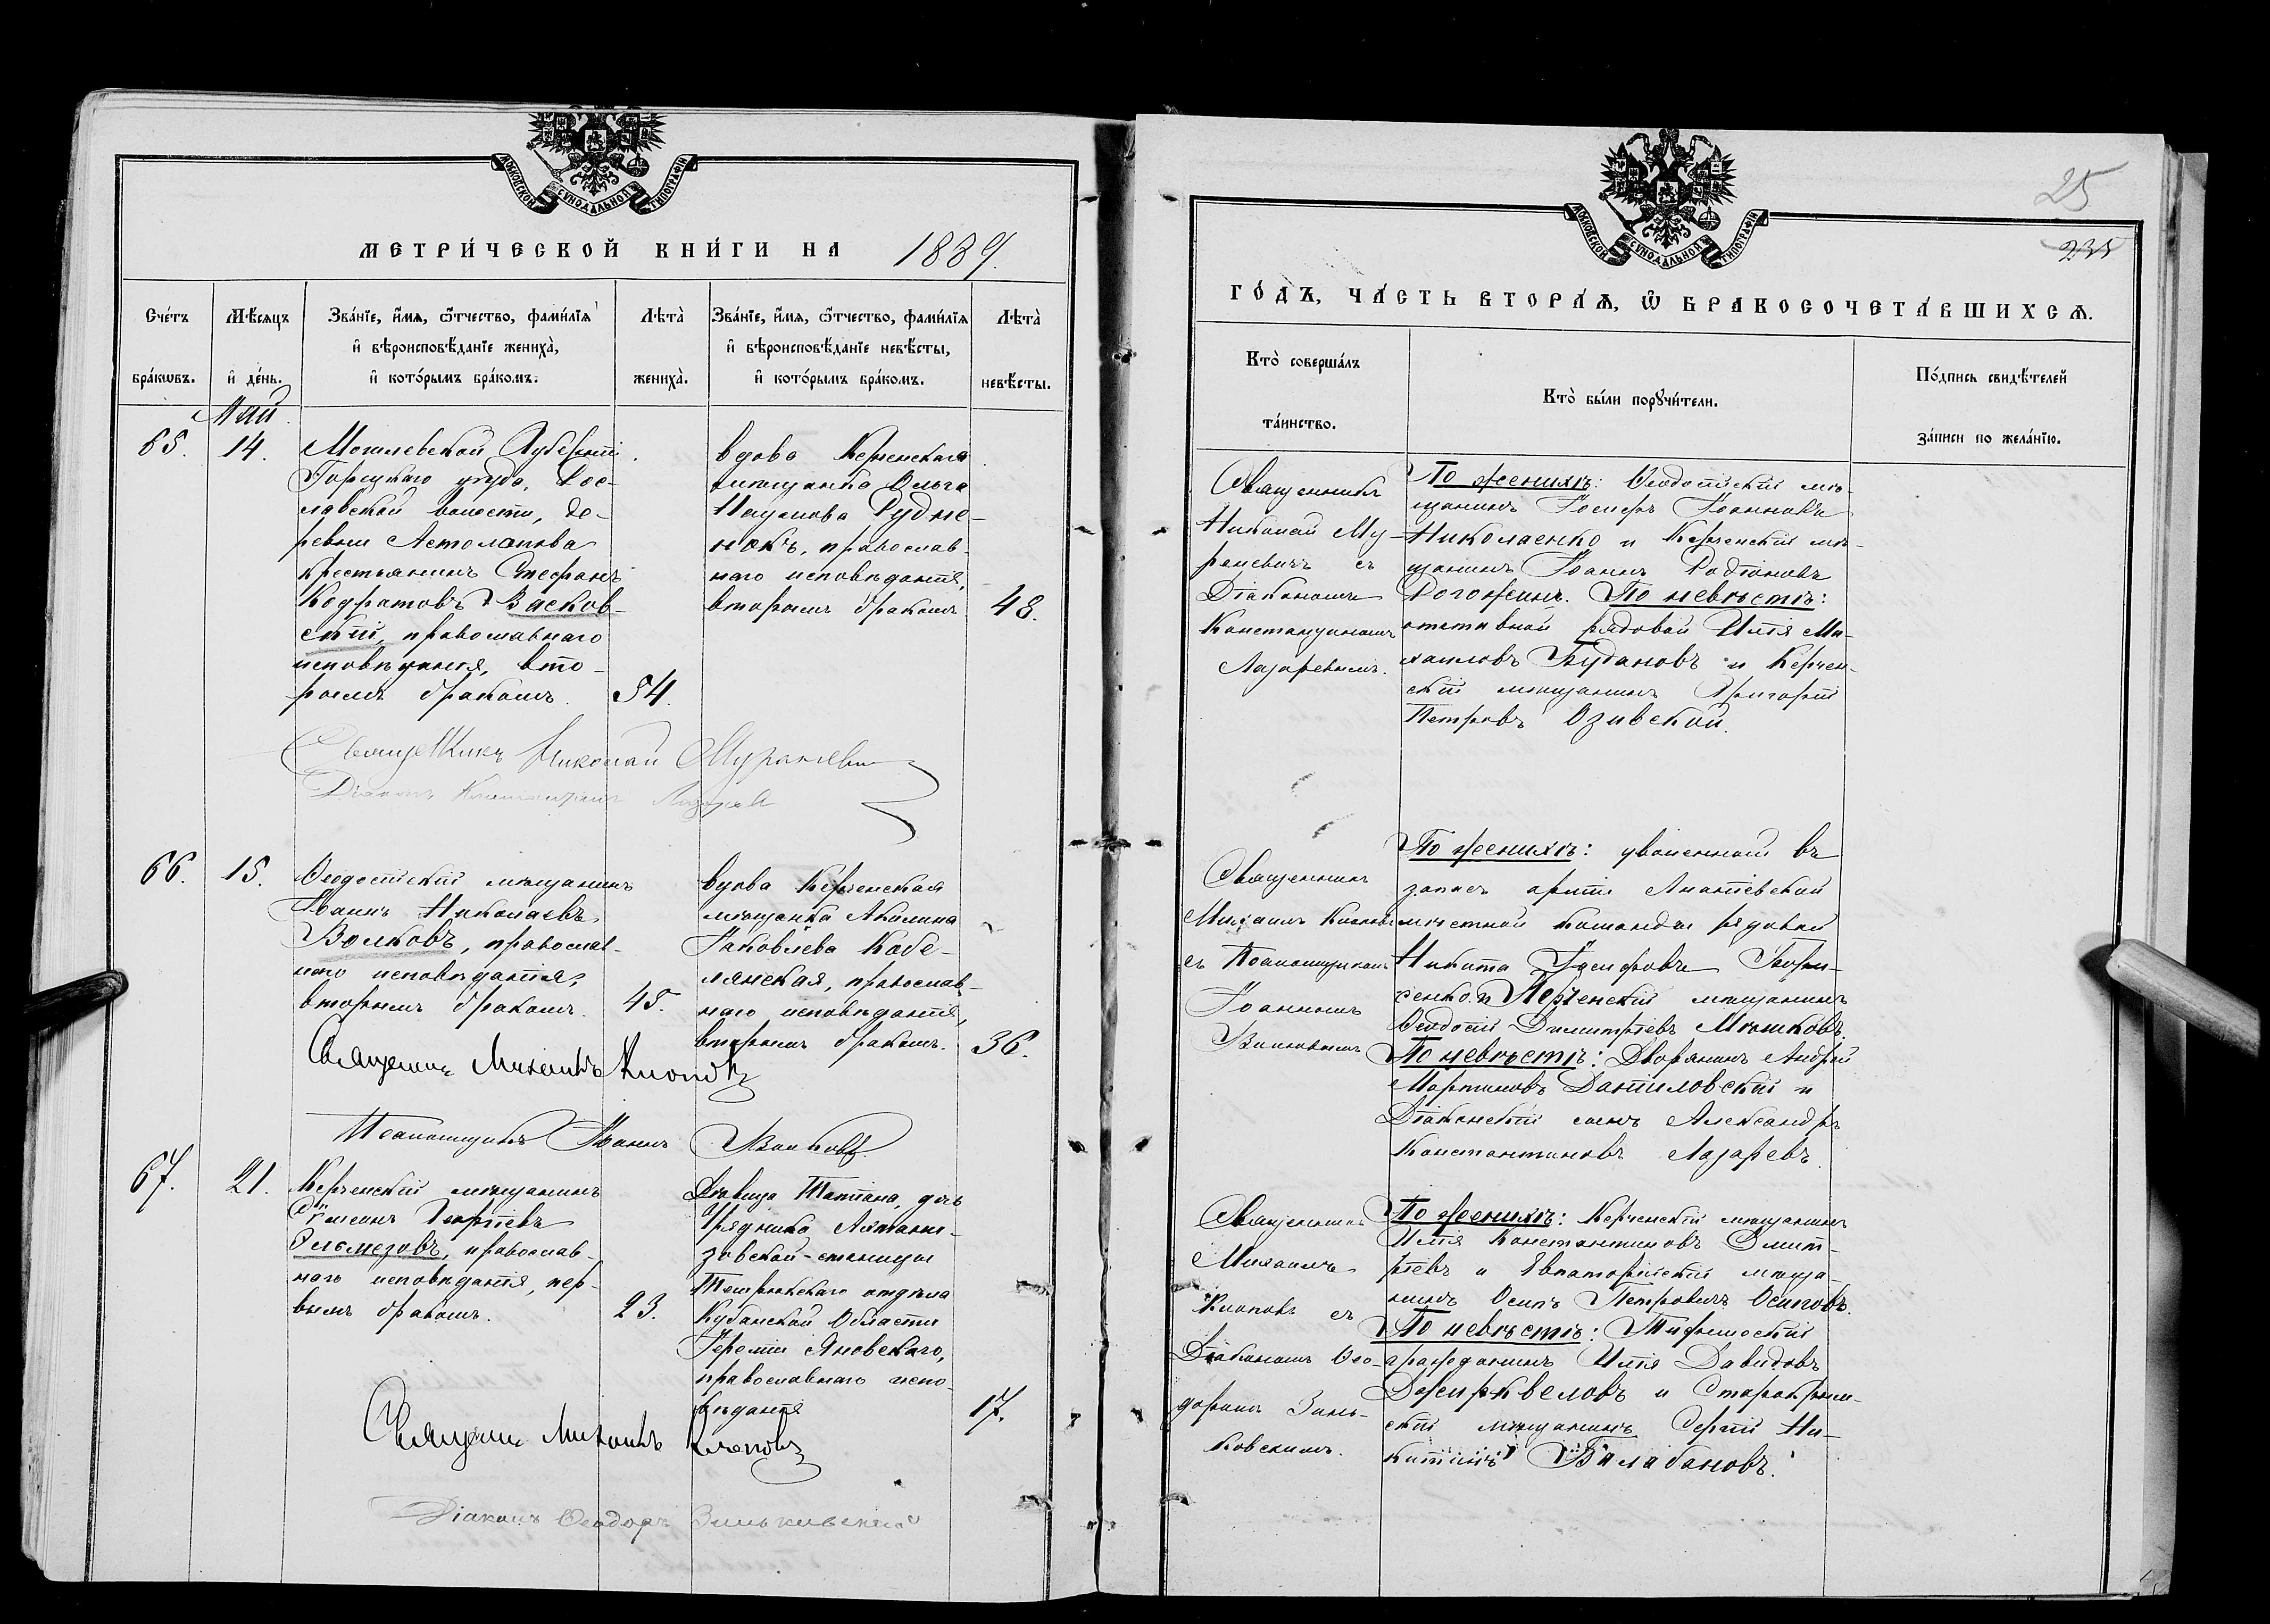 МОСКОВСКОЙ СѴНОДАЛЬНОЙ ТИПОГРАФІИ
МЕТРИ́ЧЕСКОЙ КНИ́ГИ НА 1889.
Сче́тъ бра́кѡвъ.
Мѣ́сяцъ и҆ де́нь.
Зва́нїе, и҆́мя, ѻ҆́тчество, фами́лїя
и҆ вѣроисповѣ́данїе жениха̀,
и҆ кото́рымъ бра́комъ.
Лѣта̀ жениха̀.
Зва́нїе, и҆́мя, ѻ҆́тчество, фами́лїя
и҆ вѣроисповѣ́данїе невѣ́сты,
и҆ кото́рымъ бра́комъ.
Лѣта̀ невѣ́сты.
Май
65.
14.
Могилевской Губерніи
Горецкаго уѣзда,
славской волости, де-
ревни
крестьянинъ Стефанъ
Кодратовъ Васков-
скій, православнаго
исповѣданія, вто-
рымъ бракомъ.
54.
вдова Керченская
мѣщанка Ольга
Наумова Рудне-
нокъ, православ-
наго исповѣданія,
вторымъ бракомъ
48.
Священникъ Николай Мураневичъ
Діаконъ Константинъ Лазаревъ
66.
15.
Ѳеодосійскій мѣщанинъ
Іоаннъ Николаевъ
Волковъ, православ-
наго исповѣданія,
вторымъ бракомъ.
45.
вдова Керченская
мѣщанка Акилина
Іаковлева Кобе-
лянская, православ-
наго исповѣданія,
вторымъ бракомъ.
36.
Священникъ Михаилъ Клоповъ
Псаломщикъ Іоаннъ
67.
21.
Керченскій мѣщанинъ
Сѵмеонъ Георгіевъ
Сельмезовъ, православ-
наго исповѣданія, пер-
вымъ бракомъ.
23.
Дѣвица Татіана, дочь
Урядника Ахтани-
зовской станицы
Темрюкскаго отдѣла
Кубанской Области
Іереміи Яновскаго,
православнаго испо-
вѣданія
17.
Священникъ Михаилъ Клоповъ
Діаконъ Ѳеодоръ Зиньковскій
МОСКОВСКОЙ СѴНОДАЛЬНОЙ ТИПОГРАФІИ
25
235
ГО́ДЪ, ЧА́СТЬ ВТОРА́Ѧ, Ѽ БРАКОСОЧЕТА́ВШИХСѦ.
Кто̀ соверша́лъ
та́инство.
Кто̀ бы́ли порꙋчи́тели.
По́дпись свидѣ́телей
за́писи по жела́нїю.
Священникъ
Николай Му-
раневичъ съ
Діакономъ
Константиномъ
Лазаревымъ.
По женихѣ: Ѳеодосійскій мѣ-
щанинъ Іосифъ Іоанновъ
Николаенко и Керченскій мѣ-
щанинъ Іоаннъ Родіоновъ
Рогожинъ. По невѣстѣ:
отставной рядовой Илія Ми-
хаиловъ Будановъ и Керчен-
скій мѣщанинъ Григорій
Петровъ Озивской.
Священникъ
Михаилъ Клоповъ
съ Псаломщикомъ
Іоанномъ
По женихѣ: уволенный въ
запасъ арміи Ананіевской
мѣстной команды рядовой
Никита Іосифовъ
и Керченскій мѣщанинъ
Ѳеодосій Димитріевъ Мѣшковъ.
По невѣстѣ: Дворянинъ Андрей
Мартиновъ Даниловскій и
Діаконскій сынъ Александръ
Константиновъ Лазаревъ.
Священникъ
Михаилъ
Клоповъ съ
Діакономъ Ѳео-
доромъ Зинь-
ковскимъ.
По женихѣ: Керченскій мѣщанинъ
Илія Константиновъ Дмит-
ріевъ и Евпаторійскій мѣща-
нинъ Осипъ Петровичъ Осиповъ.
По невѣстѣ: Тифлисскій
гражданинъ Илія Давидовъ
Джирквеловъ и Старокрым-
скій мѣщанинъ Сергій Ни-
китинъ Балабановъ.